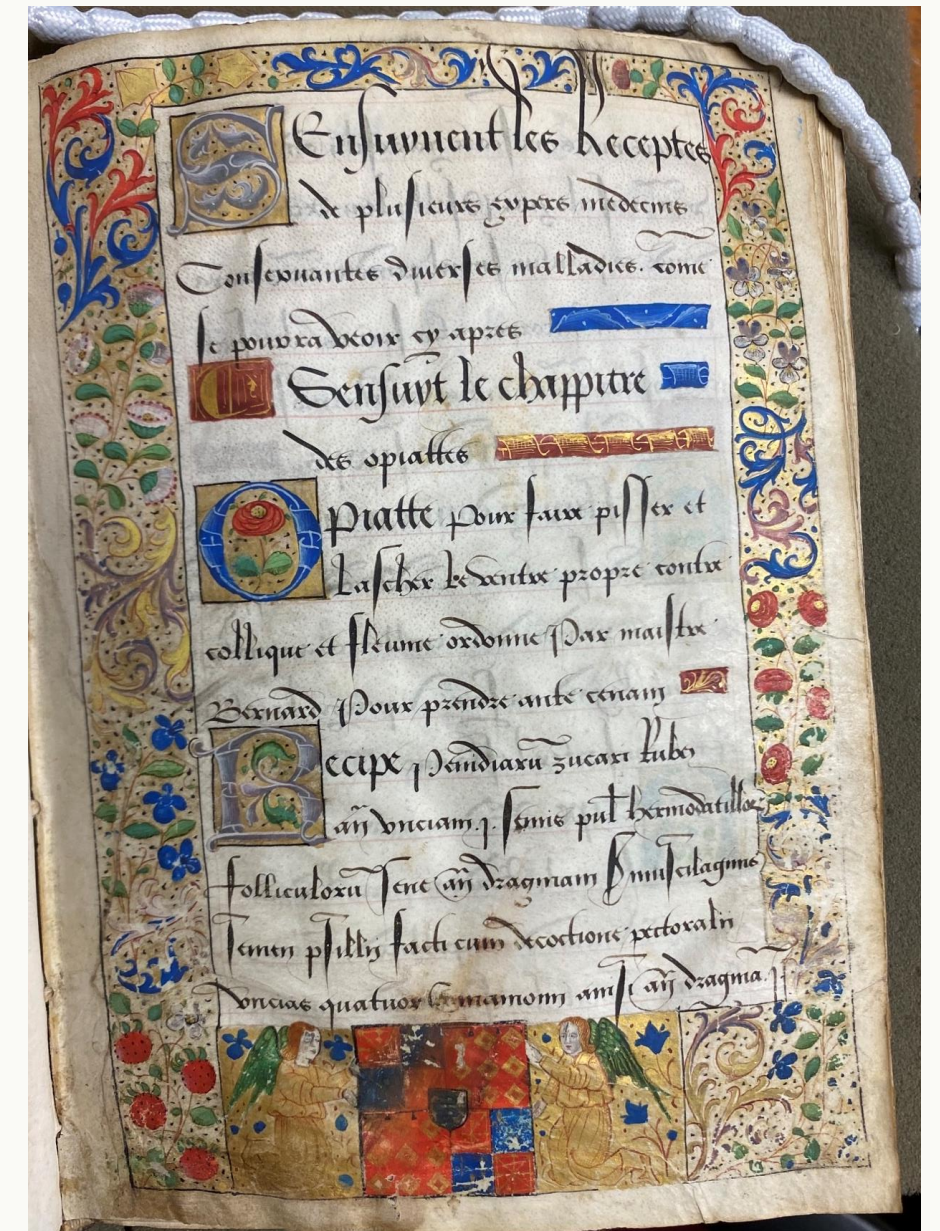 SEnsuyuent les Receptes
de plusieurs expers medecins
Conseruantes diuerses malladies. come
se pourra veoir cy apres
Sensuyt le chappitre
des opiattes
OPiatte pour faire pisser et
Lascher le ventre propre contre
collique et fleume ordonne Par maistre
Bernard Pour prendre ante cenam
Recipe penidiarū zucari Rubei
añ vnciam .j. semis pul hermodatillorū
folliculorū sene añ dragmam muscilaginis
semen psillij facti cum decoctione pectoralij
vncias quatuor añ dragma